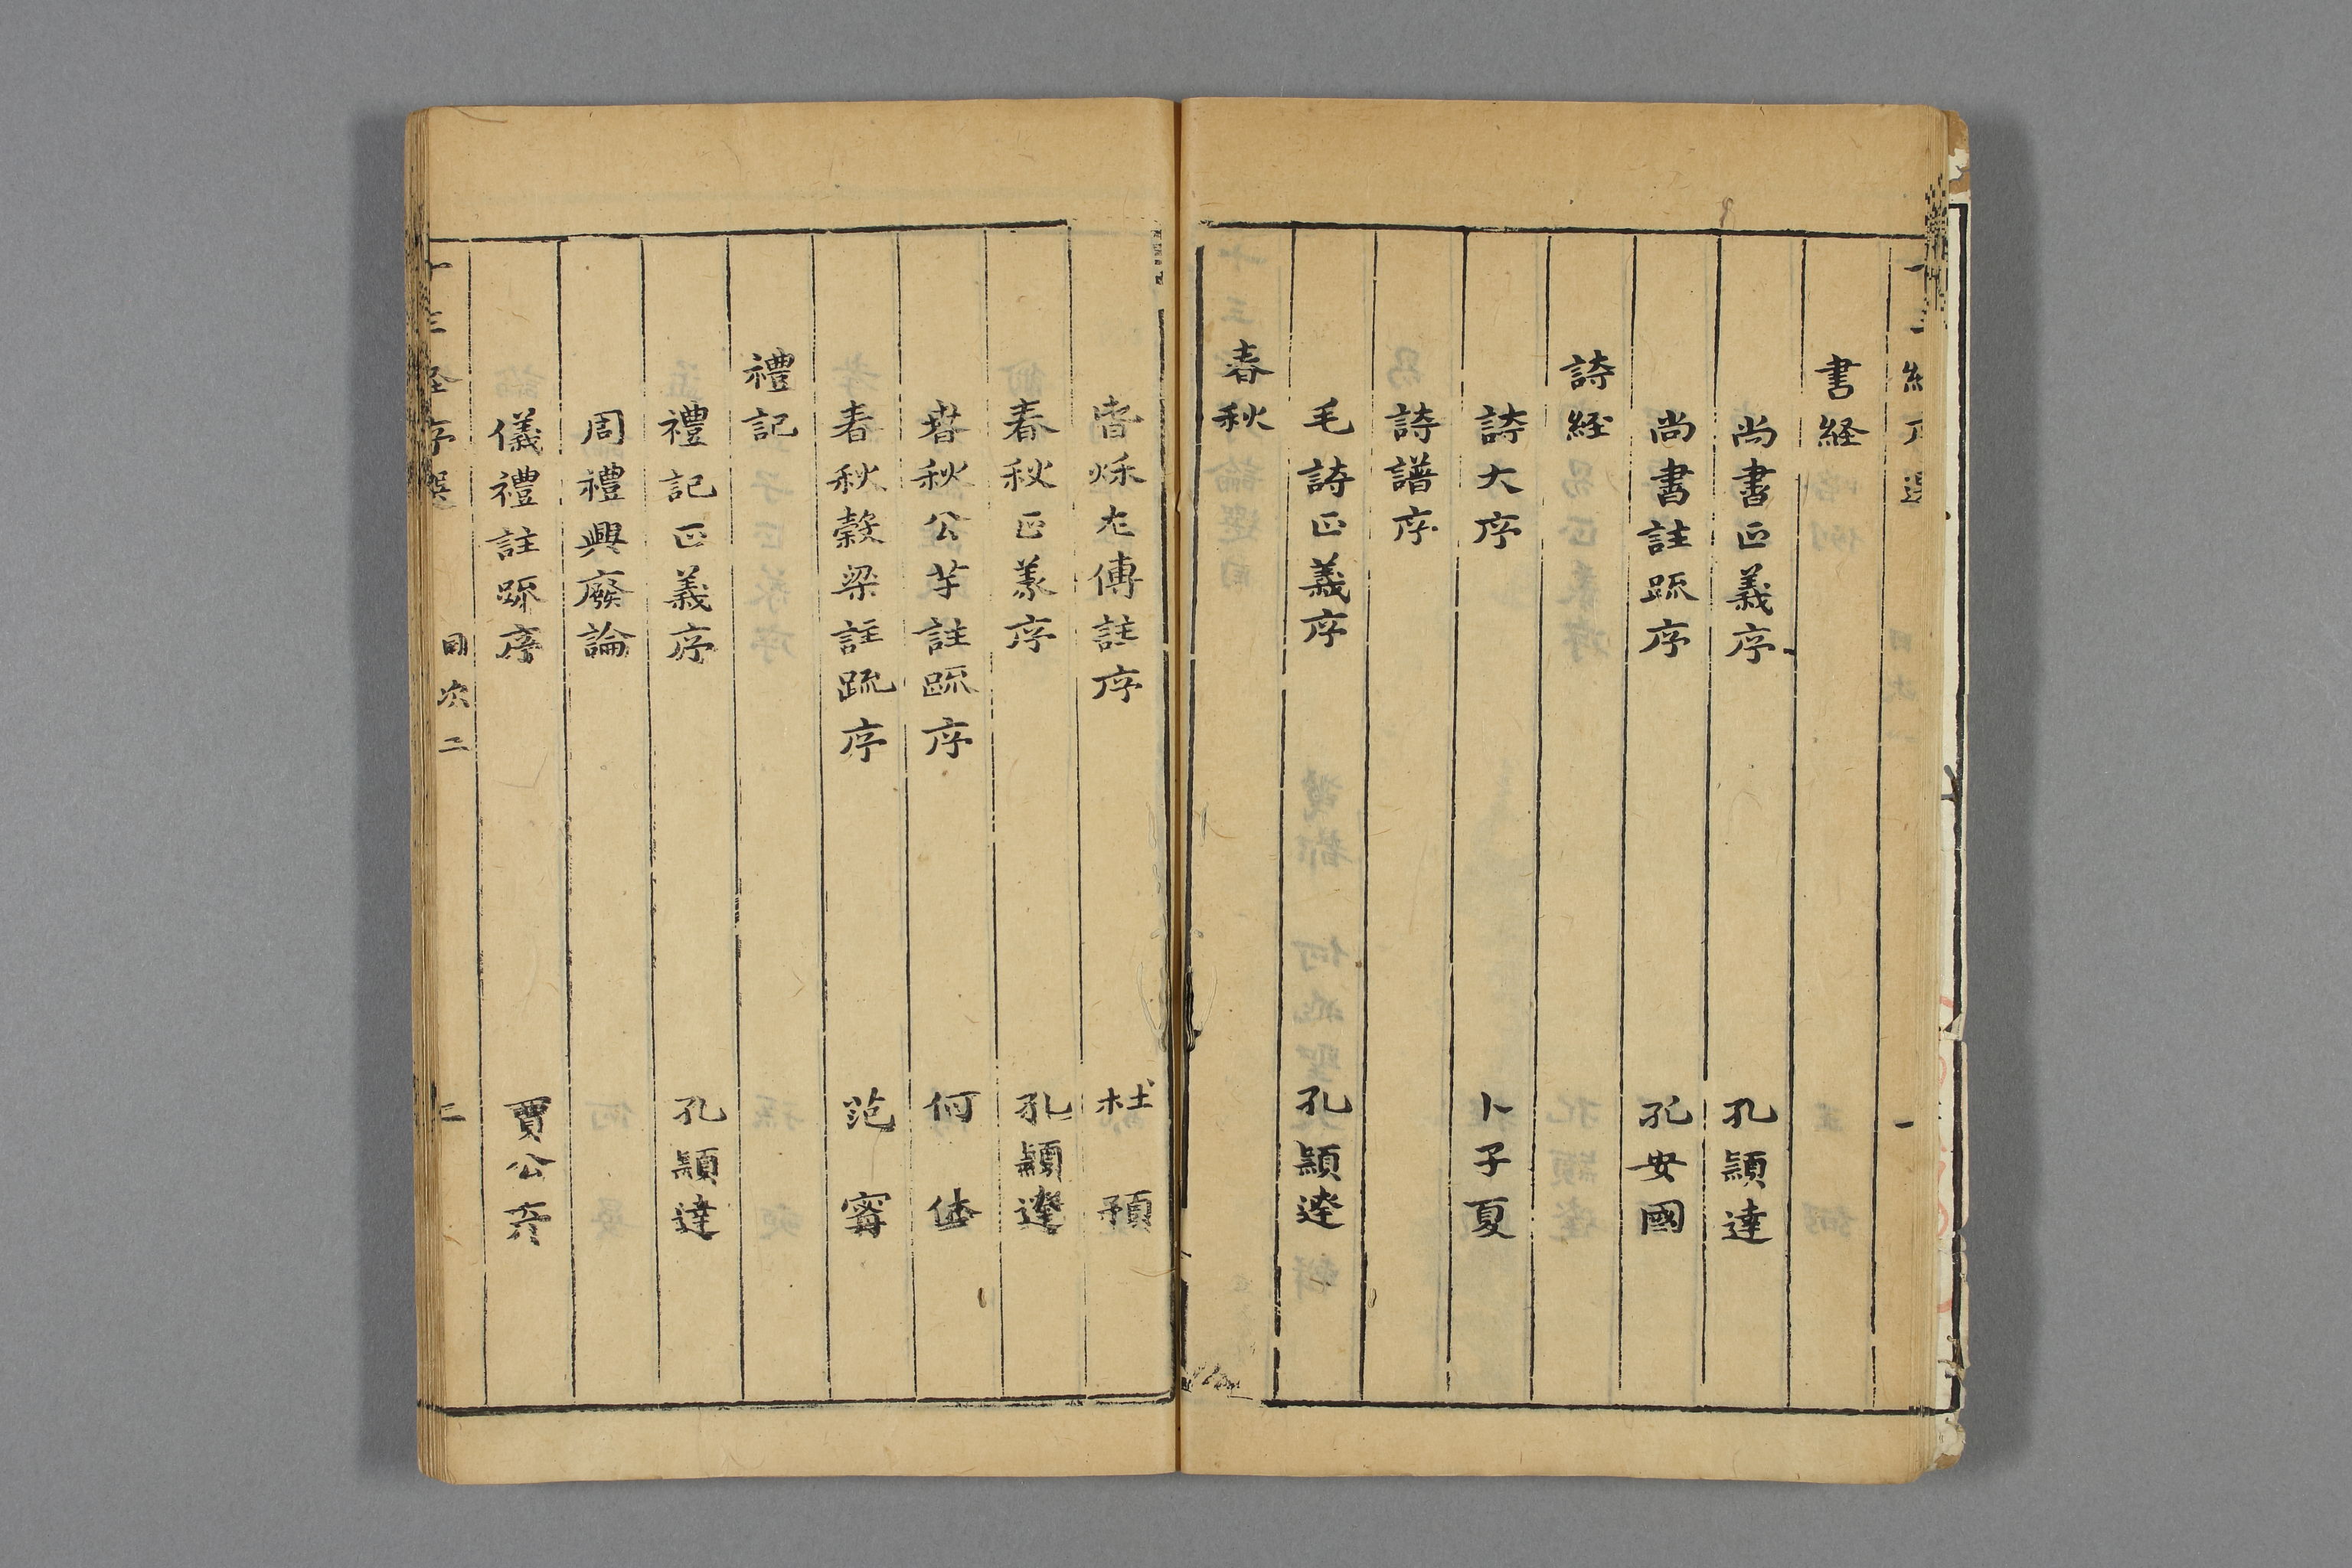 書経
尚書正義序 孔穎達
尚書註䟽序 孔安國
詩経
詩大序 卜子夏
詩譜序
毛詩正義序 孔穎達
春秋
春秋左傳註序 杜預
春秋正義序 孔穎達
春秋公羊註䟽序 何休
春秋穀梁註疏序 范甯
禮記
禮記正義序 孔穎達
周禮興廢論
儀禮註䟽序 賈公彦
十三經序選 目次二 二